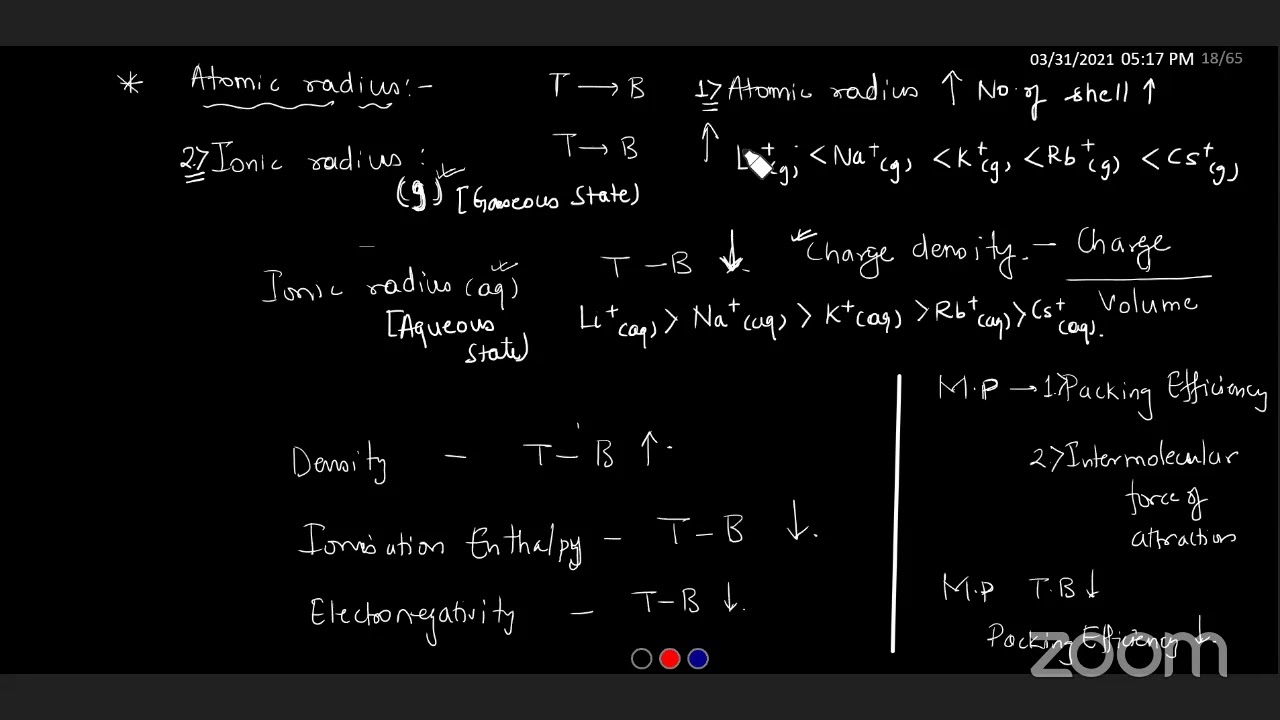 03/31/2021 05:17 PM 18/65
* Atomic radius:- T → B 1> Atomic radius ↑ No. of shell ↑
2.> Ionic radius : T → B ↑ Li+(g) < Na+(g) < K+(g) < Rb+(g) < Cs+(g)
(g) [Gaseous State)
T - B ↓ Charge density. - Charge
Ionic radius (aq) Volume
[Aqueous State) Li+(aq) > Na+(aq) > K+(aq) > Rb+(aq) > Cs+(aq).
M.P → 1.> Packing Efficiency
Density - T - B ↑.
2> Intermolecular
force of
attraction
Ionisation Enthalpy - T - B ↓.
Electronegativity - T - B ↓.
M.P T.B ↓
Packing Efficiency ↓.
zoom